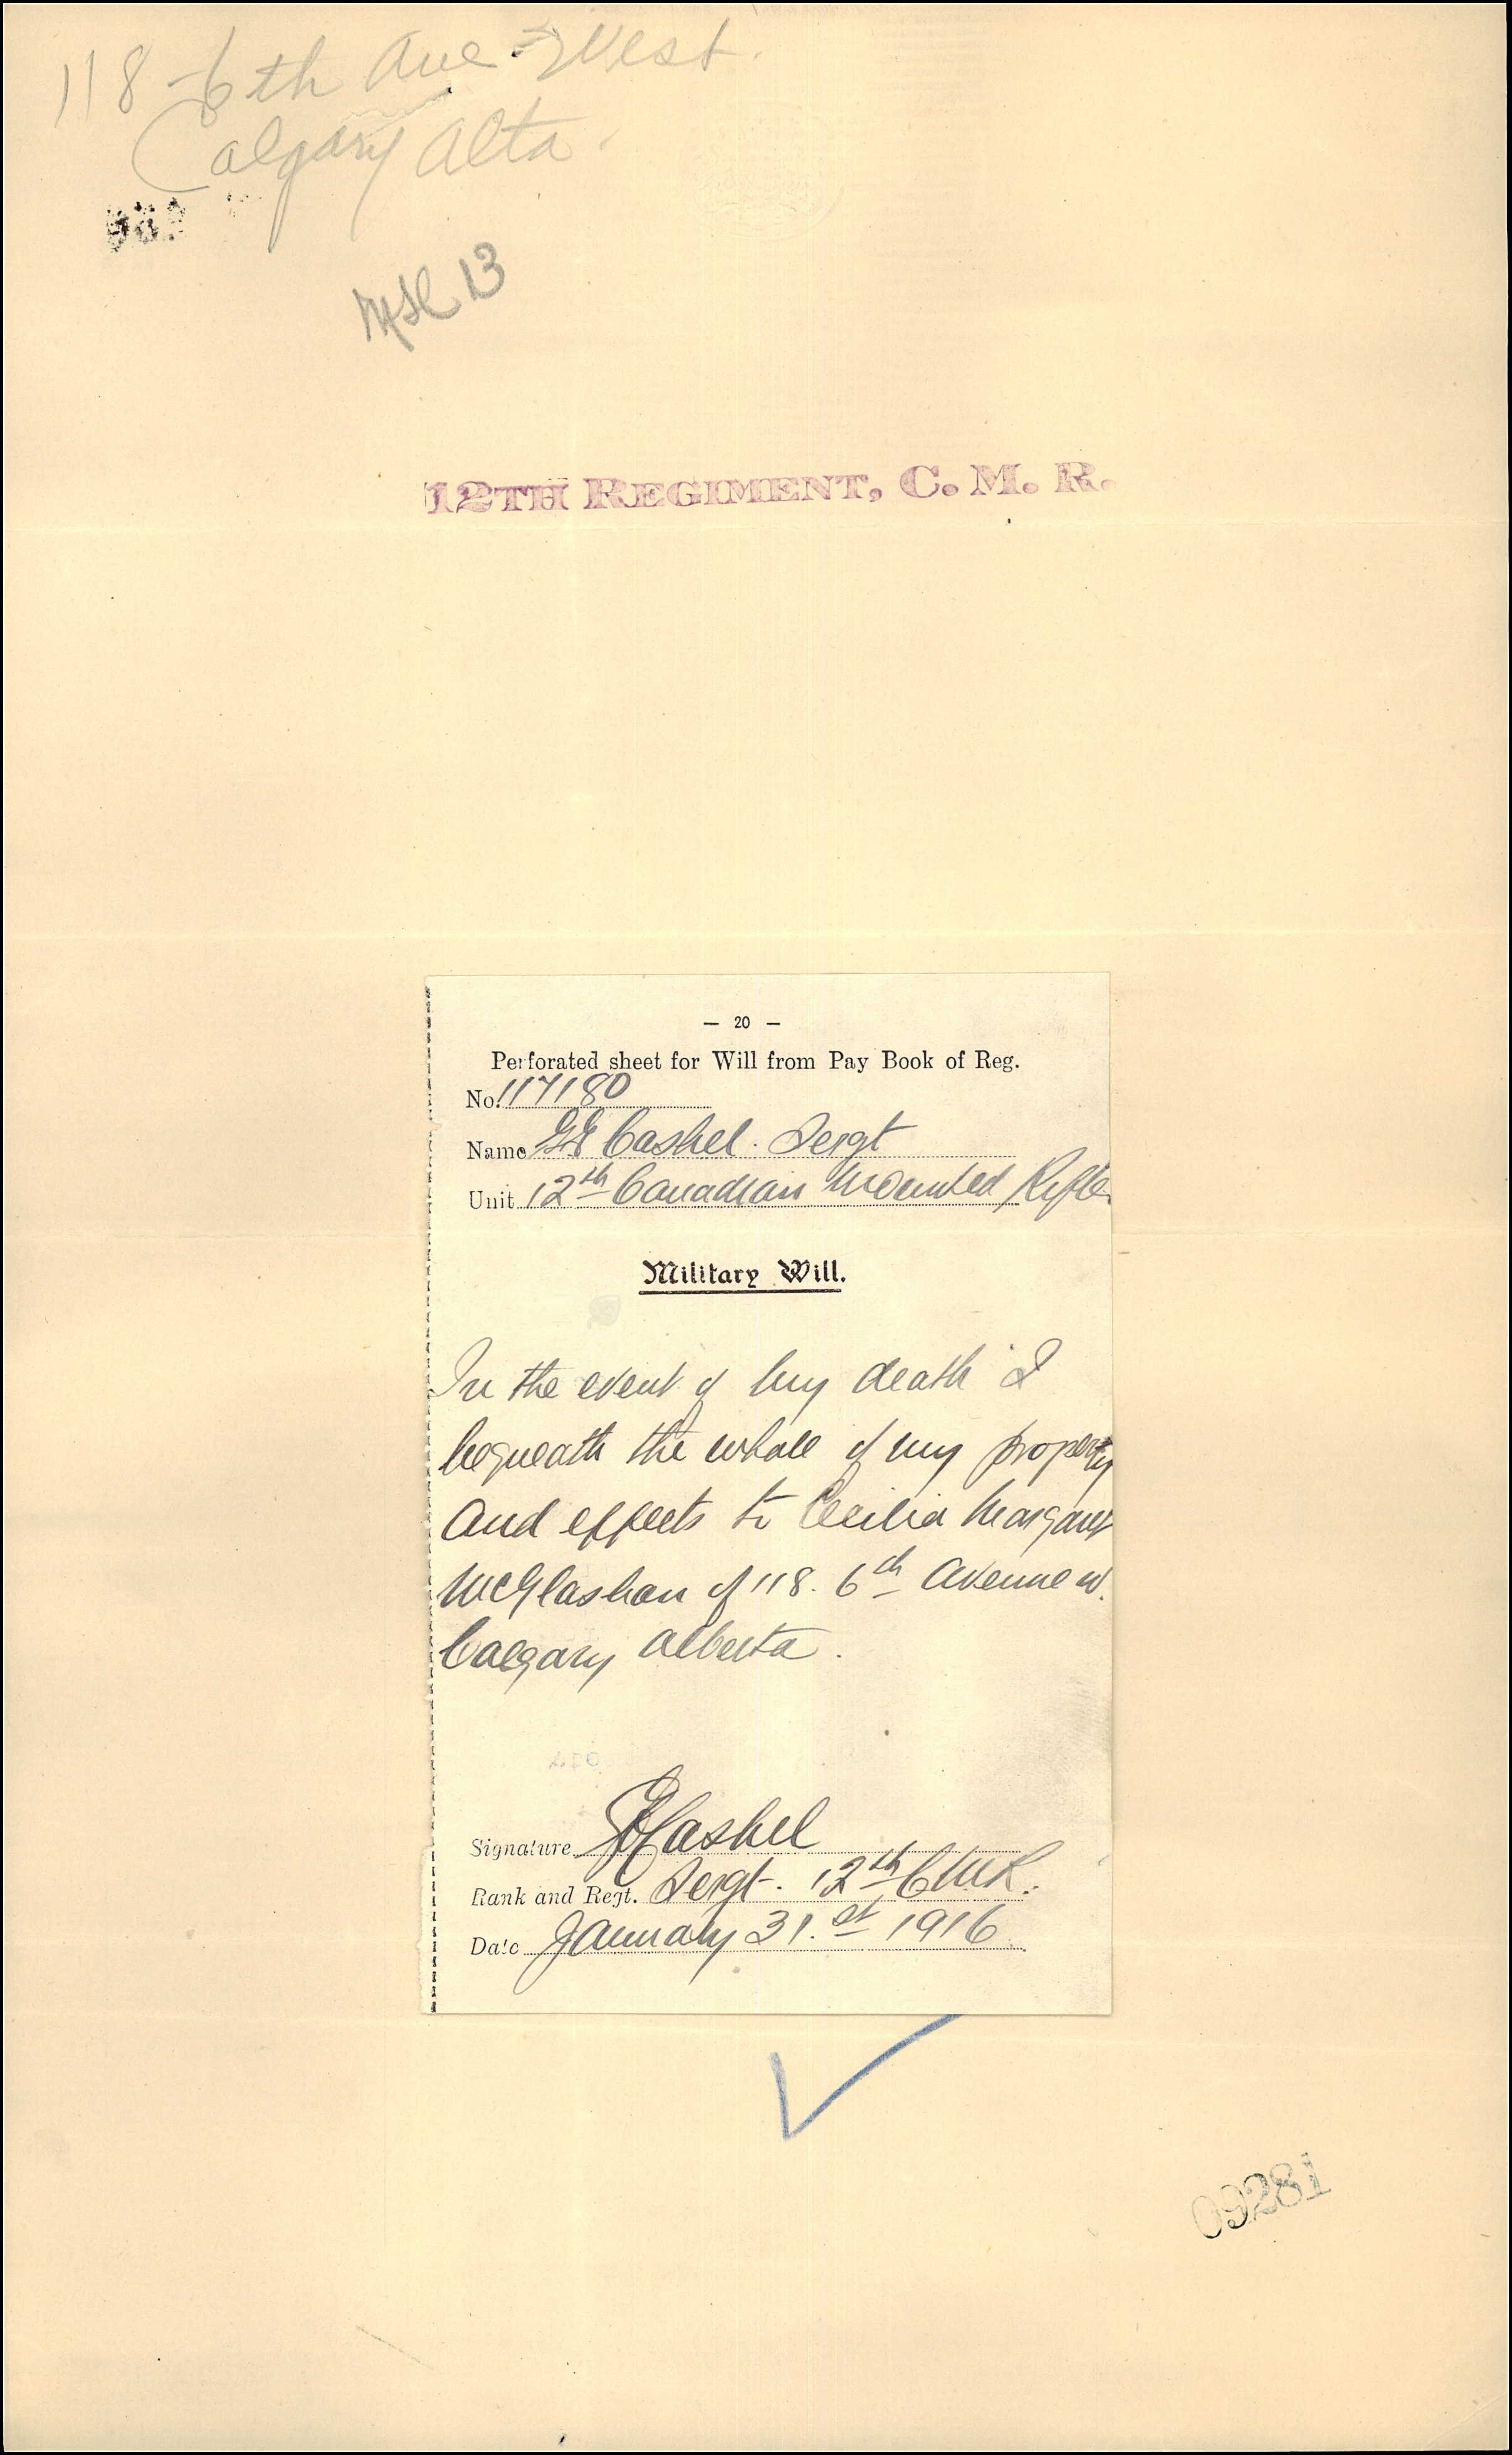 118 - 6th Ave West.
Calgary Alta.
13
12TH REGIMENT, C. M. R.
— 20 —
Perforated sheet for Will from Pay Book of Reg.
No. 117180
Name GE Cashel. Sergt
Unit 12th Canadian Mounted Rifles
Military Will.
In the event of my death I
bequeath the whole of my property
and effects to Cecilia Margaret
McGlashan of 118. 6th Avenue W.
Calgary Alberta.
Signature Cashel
Rank and Regt. Sergt. 12th CMR.
Date January 31.st 1916.
09281